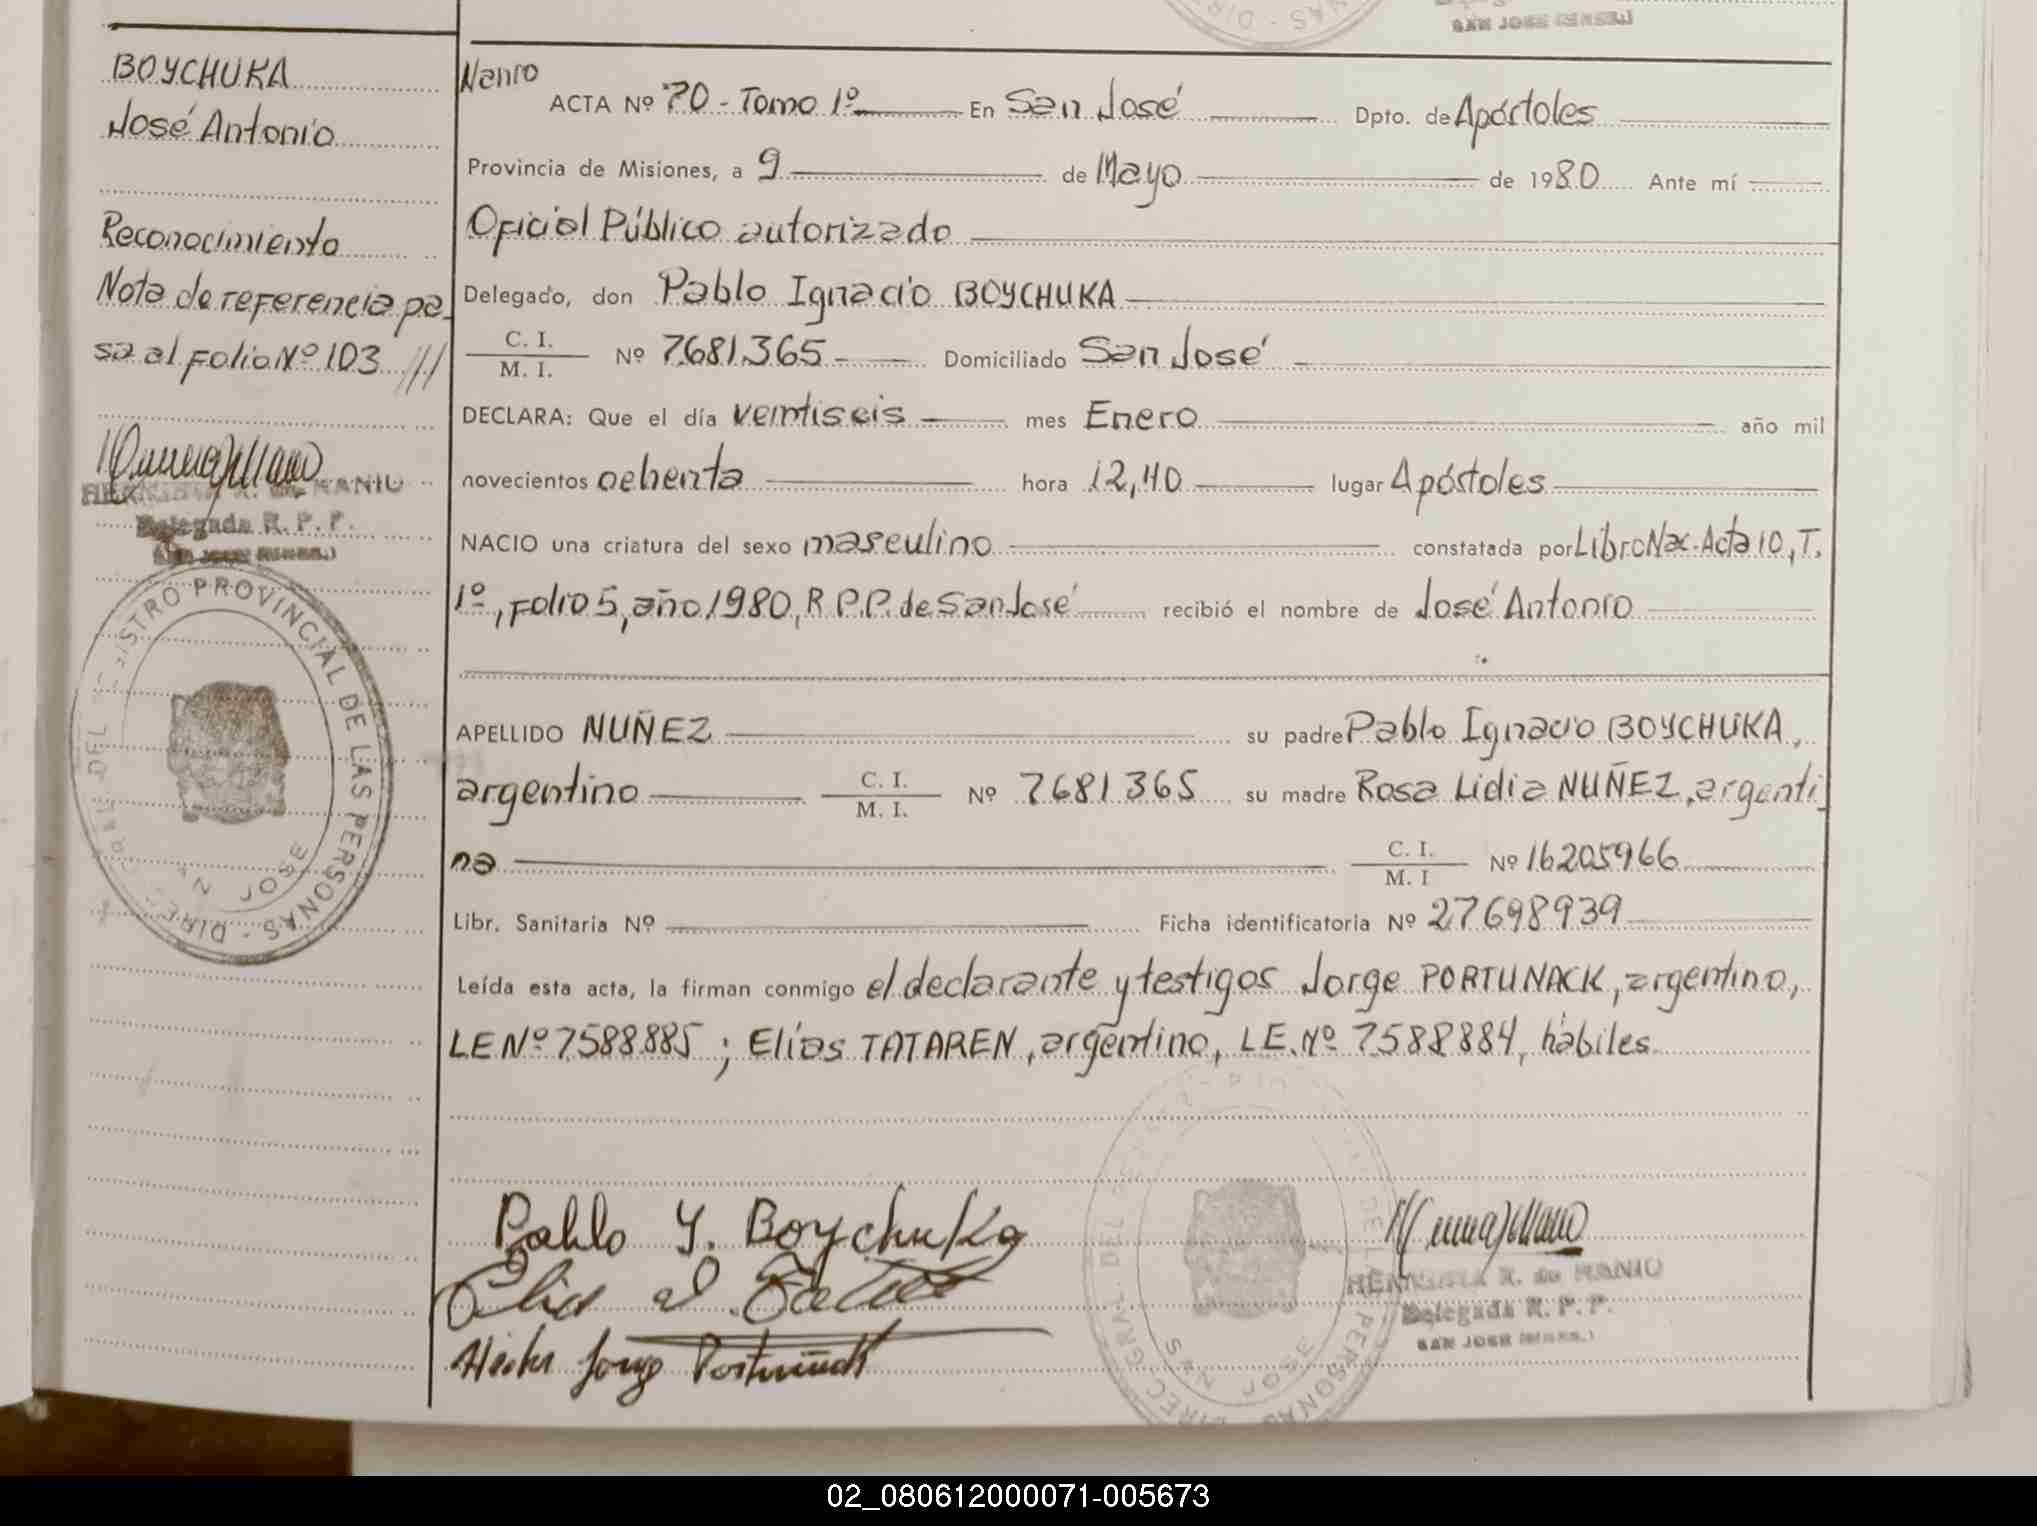 SAN JOSE (MNES.)
BOYCHUKA
José Antonio
Reconocimiento
Nota de referencia pa_
sa al Folio Nº 103 ///
HERMINIA K. de MANIU
Delegada R. P. P.
SAN JOSE (MNES.)
REGISTRO PROVINCIAL DE LAS PERSONAS - DIREC. GRAL. DEL
SAN JOSE
ACTA Nº 70 - Tomo 1º En San José Dpto. de Apóstoles
Provincia de Misiones, a 9 de Mayo de 1980 Ante mí
Oficial Público autorizado
Delegado, don Pablo Ignacio BOYCHUKA
C. I.
M. I. Nº 7.681.365 Domiciliado San José
DECLARA: Que el día veintiseis mes Enero año mil
novecientos ochenta hora 12,40 lugar Apóstoles
NACIO una criatura del sexo masculino constatada por Libro Nac. Acta 10, T.
1º, Folio 5, año 1980, R.P.P. de San José recibió el nombre de José Antonio
APELLIDO NUÑEZ su padre Pablo Ignacio BOYCHUKA,
argentino C. I.
M. I. Nº 7681365 su madre Rosa Lidia NUÑEZ, argenti_
na C. I.
M. I Nº 16205966
Libr. Sanitaria Nº Ficha identificatoria Nº 27698939
Leída esta acta, la firman conmigo el declarante y testigos Jorge PORTUNACK, argentino,
LE Nº 7588885 ; Elías TATAREN, argentino, LE. Nº 7588884, hábiles
Pablo Y. Boychuka
HERMINIA K. de MANIU
Delegada R. P. P.
SAN JOSE (MNES.)
02_080612000071-005673